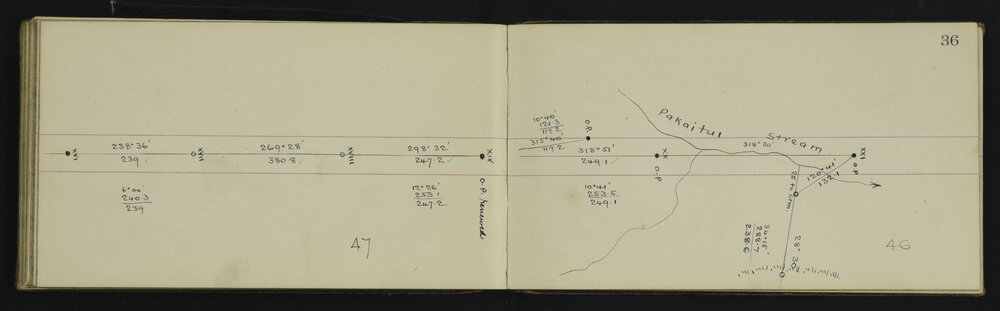 36
238° 36'
239
269° 28'
380.8
298° 32'
247.2
XVI
XVII
XVIII
XIX
O.P. Renewed
6° 00'
240.3
239
12° 26'
253.1
247.2
47
10° 40'
121.3
119.2
315° 40'
119.2
O.P.
318° 51'
249.1
XX
O.P.
10° 41'
253.5
249.1
Pakaitui Stream
318° 30'
XXI
O.P.
120° 41'
132.1
25 to Stm.
28° 30'
34° 15'
288.7
238.6
46